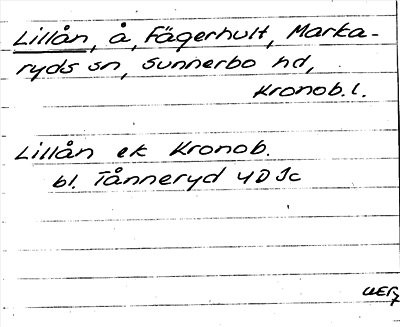 Lillån, å, Fägerhult, Marka-
ryds sn, Sunnerbo hd,
Kronob. l.
Lillån ek Kronob.
bl. Tånneryd 4D Jc